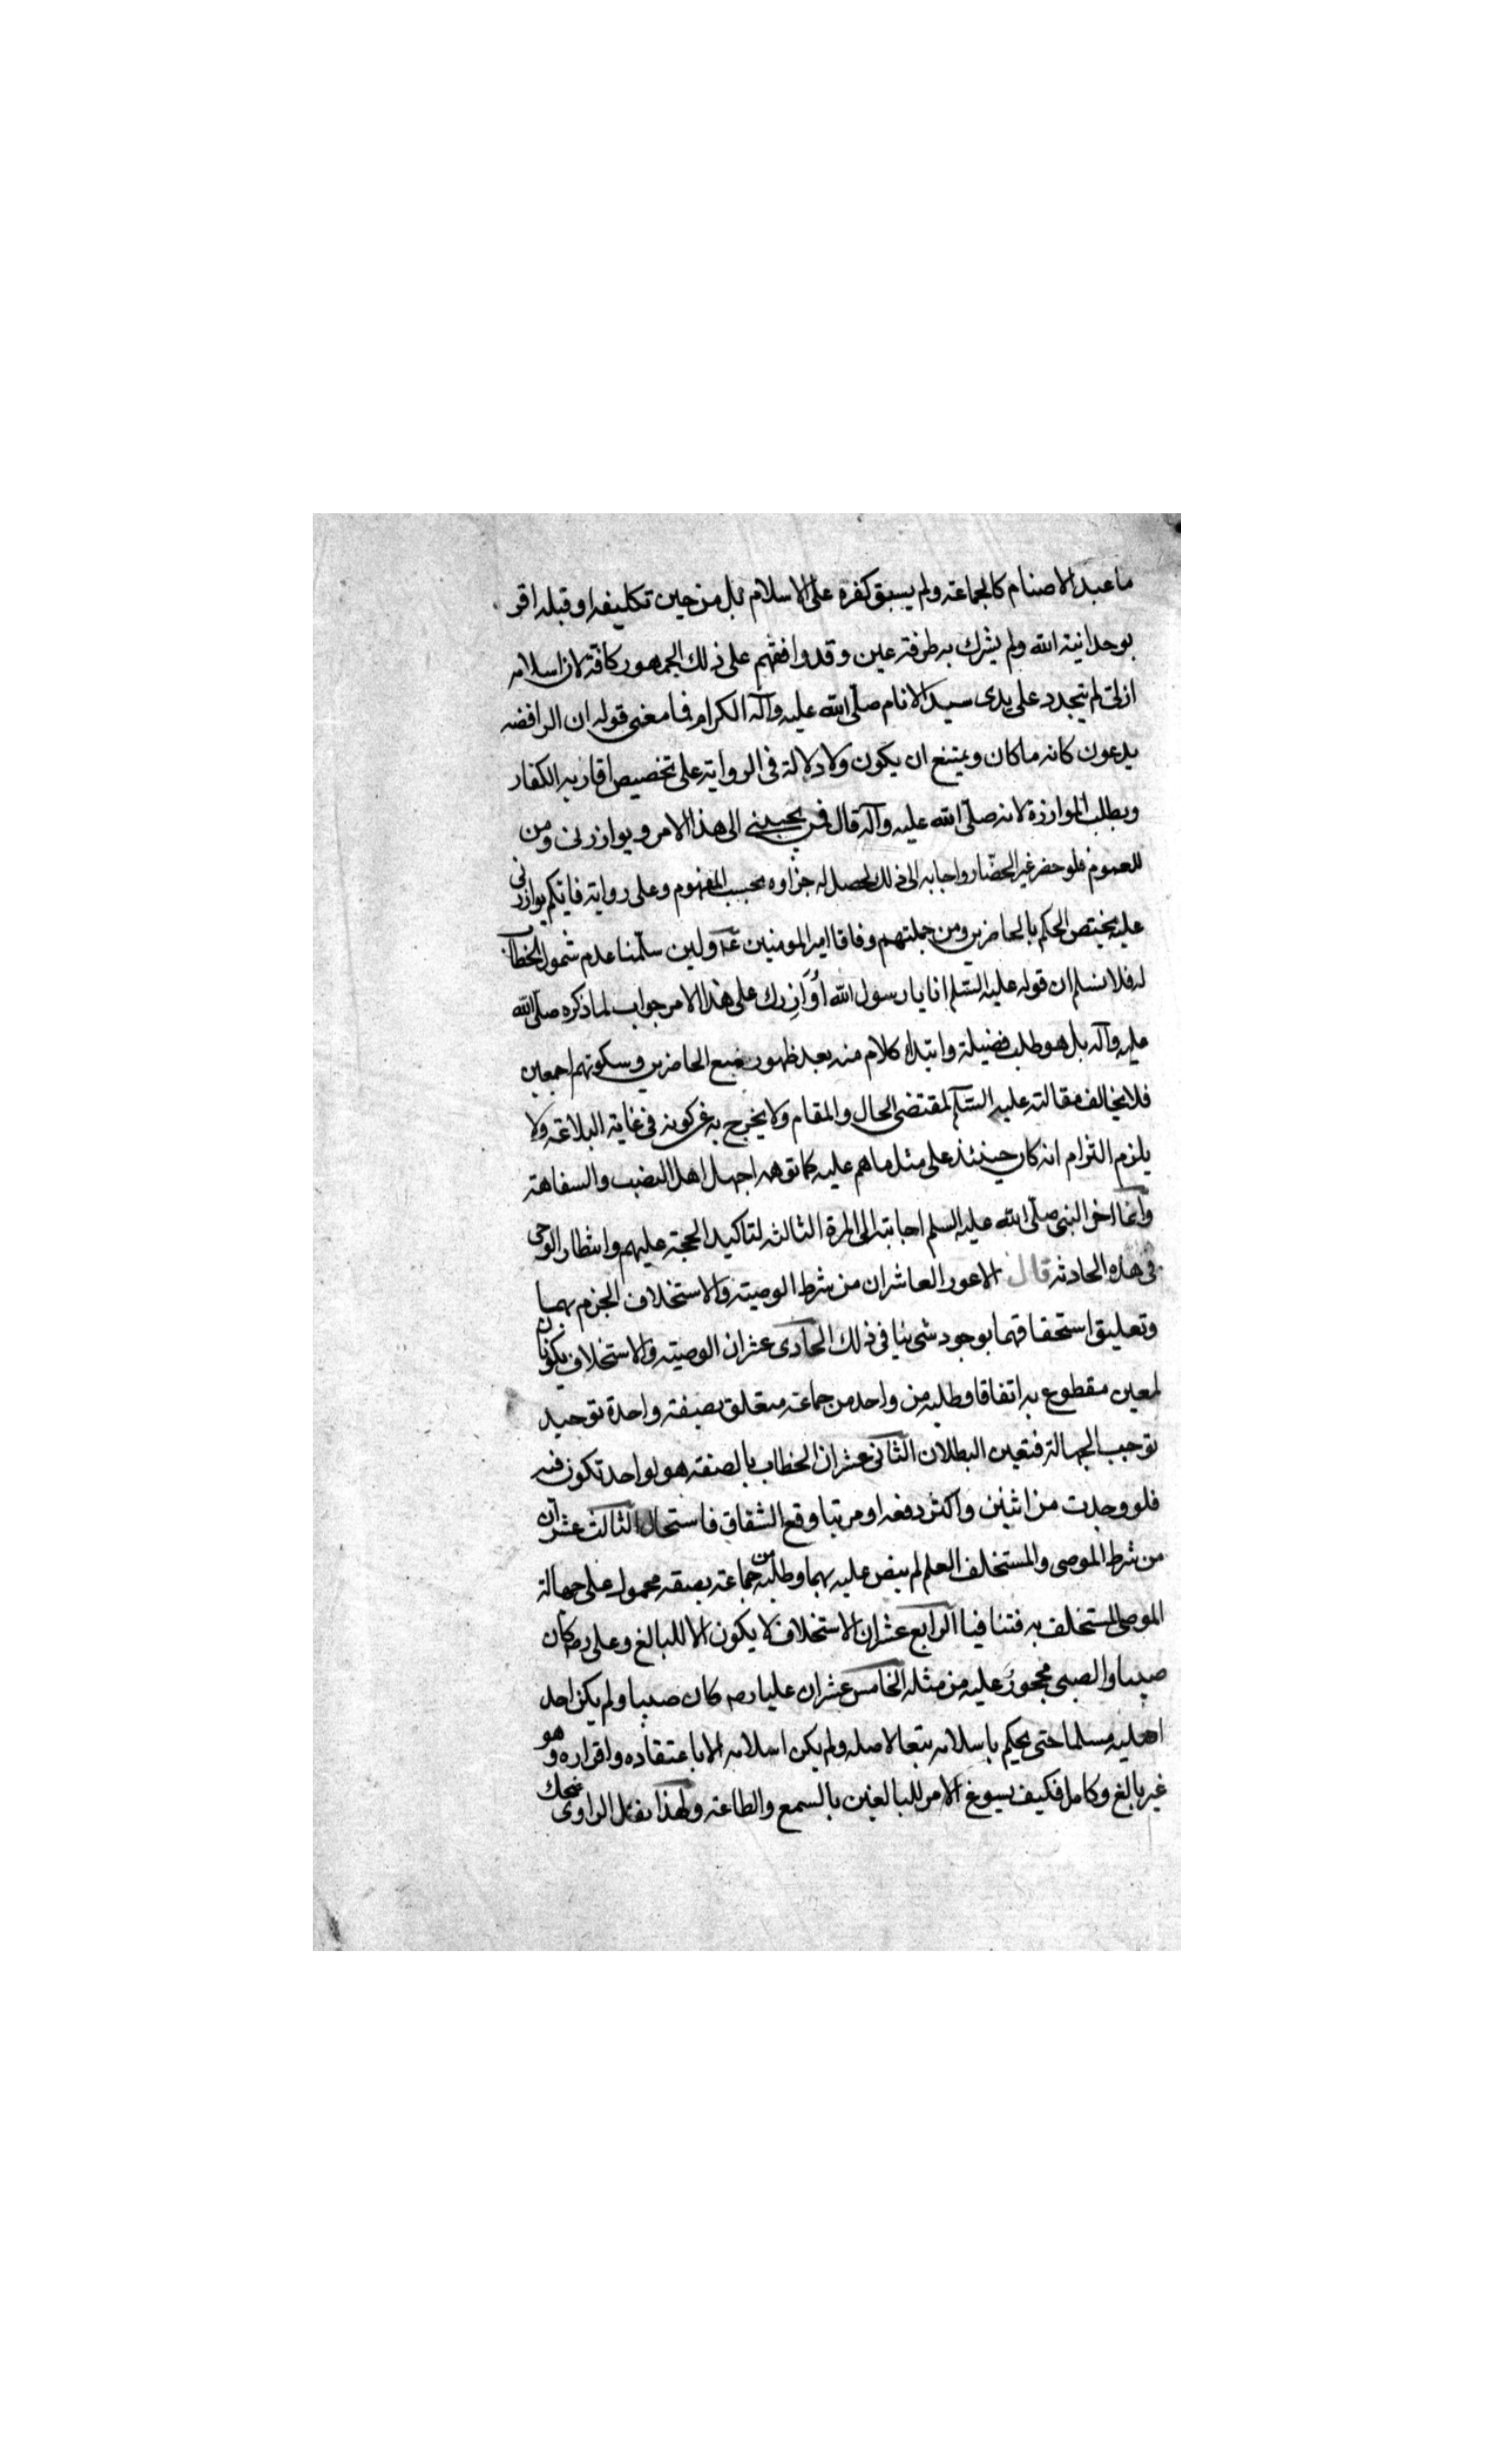 ما عبد الاصنام كالجماعة ولم يسبق كفره على الاسلام بل من حين تكليفه او قبله اقر
بوحدانية الله ولم يشرك به طرفة عين وقد وافقهم على ذلك الجمهور كافة لان اسلامه
ازلي لم يتجدد على يدى سيد الانام صلّى الله عليه وآله الكرام فما معنى قوله ان الرافضه
يدعون كانه ما كان ويمتنع ان يكون ولا دلالة فى الرواية على تخصيص اقاربه الكفار
وبطلب الموازرة لانه صلّى الله عليه وآله قال فمن يجيبنى الى هذا الامر ويوازرنى ومن
للعموم فلو حضر غير الحضّار واجابه الى ذلك لحصل له جزاوه بحسب المفهوم وعلى رواية فايكم يوازرنى
عليه يختص الحكم بالحاضرين ومن جملتهم وفاقا امير المومنين عه ولين سلّمنا عدم شمول الخطاب
له فلا نسلم ان قوله عليه السّلم انا يا رسول الله اُوَازِرك على هذا الامر جواب لما ذكره صلّى الله
عليه وآله بل هو طلب فضيلة وابتداء كلام منه بعد ظهور الحاضرين وسكوتهم اجمعين
فلا يخالف مقالته عليه السّلم لمقتضى الحال والمقام ولا يخرج به عن كونه فى غاية البلاغة ولا
يلزم التزام انه كان حينئذ على مثل ما هم عليه كما توهمه اجهل اهل النصب والسفاهة
وانما اخر النبى صلّى الله عليه السلم اجابته الى المرة الثالثه لتاكيد الحجة عليهم وانتظار الوحى
فى هذه الحادثه قال الاعور العاشر ان من شرط الوصية والاستخلاف الجزم بهما
وتعليق استحقاقهما بوجود شى ينافى ذلك الحادى عشر ان الوصية والاستخلاف يكونان
لمعين مقطوع به اتفاقا وطلبه من واحد من جماعة متعلق بصفة واحدة توحيد
توجب الجهالة فتعين البطلان الثانى عشر ان الخطاب بالصفة هو لواحد تكون فيه
فلو وجدت من اثنين واكثر دفعه او مرتبا وقع الشقاق فاستحال الثالث عشر ان
من شرط الموصى والمستخلف العلم لم ينص عليه بهما وطلبه من جماعة بصفه محمول على جهالة
الموصى المستخلف به فتنافيا الرابع عشر ان الاستخلاف لا يكون الا للبالغ وعلى رضه كان
صبيا والصبى محجور عليه من مثله الخامس عشر ان عليا رضه كان صبيا ولم يكن احد
اهليه مسلما حتى يحكم باسلامه تبعا لاصله ولم يكن اسلامه الا باعتقاده واقراره وهو
غير بالغ وكامل فكيف يسوغ الامر للبالغين بالسمع والطاعة ولهذا نقل الراوى ضحك